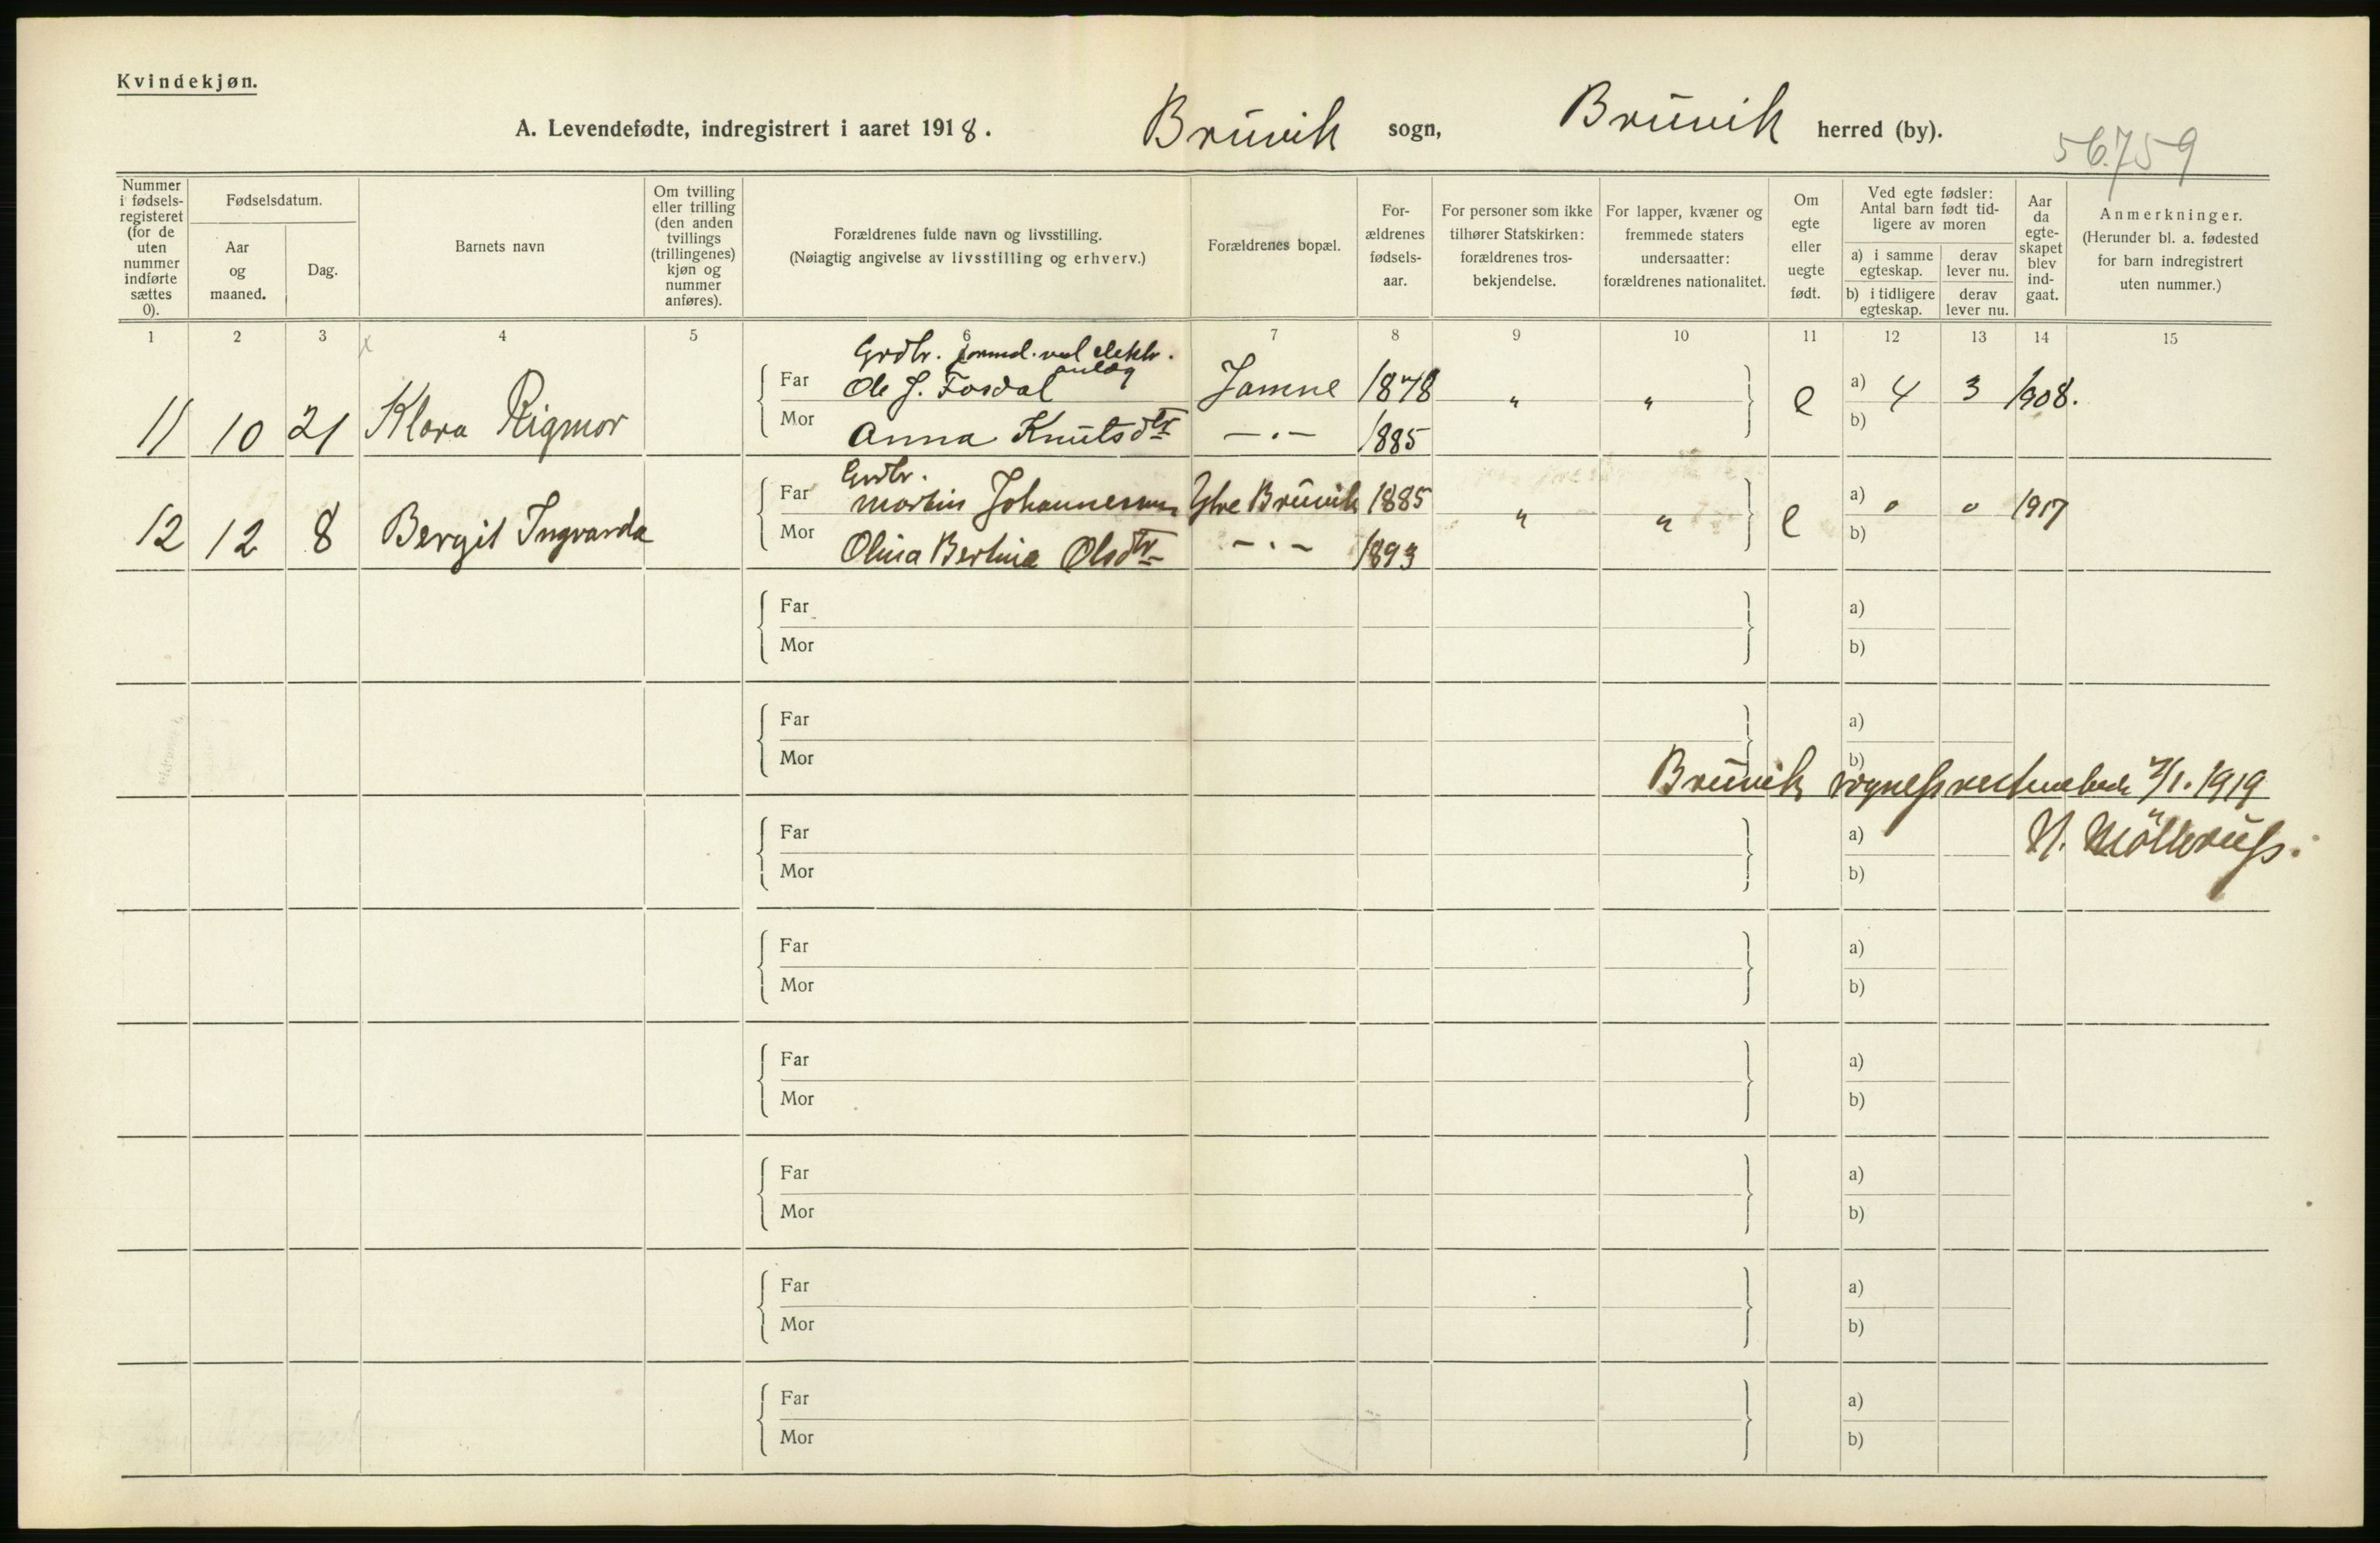 Kvindekjøn.
A. Levendefødte, indregistrert i aaret 1918. Bruvik sogn, Bruvik herred (by).
56759
Nummer i fødsels-registeret (for de uten nummer indførte sættes 0).
Fødselsdatum.
Aar og maaned.
Dag.
Barnets navn
Om tvilling eller trilling (den anden tvillings (trillingenes) kjøn og nummer anføres).
Forældrenes fulde navn og livsstilling.
(Nøiagtig angivelse av livsstilling og erhverv.)
Forældrenes bopæl.
For-ældrenes fødsels-aar.
For personer som ikke tilhører Statskirken: forældrenes tros-bekjendelse.
For lapper, kvæner og fremmede staters undersaatter: forældrenes nationalitet.
Om egte eller uegte født.
Ved egte fødsler: Antal barn født tid-ligere av moren
a) i samme egteskap.
derav lever nu.
b) i tidligere egteskap.
derav lever nu.
Aar da egte-skapet blev ind-gaat.
Anmerkninger.
(Herunder bl. a. fødested for barn indregistrert uten nummer.)
1 2 3 4 5 6 7 8 9 10 11 12 13 14 15
Grdbr. formd. ved elektr. anlæg
11 10 21 Klara Rigmor Far Ole J. Fosdal Jamne 1878 " " e a) 4 3 1908.
Mor Anna Knutsdtr —.— 1885 b)
Grdbr.
12 12 8 Bergit Ingvarda Far Martin Johannesen Ytre Bruvik 1885 " " e a) 0 0 1917
Mor Olina Bertine Olsdtr —.— 1893 b)
Far a)
Mor b)
Far a)
Mor b)
Bruvik 1919
Far a)
Mor b)
Far a)
Mor b)
Far a)
Mor b)
Far a)
Mor b)
Far a)
Mor b)
Far a)
Mor b)